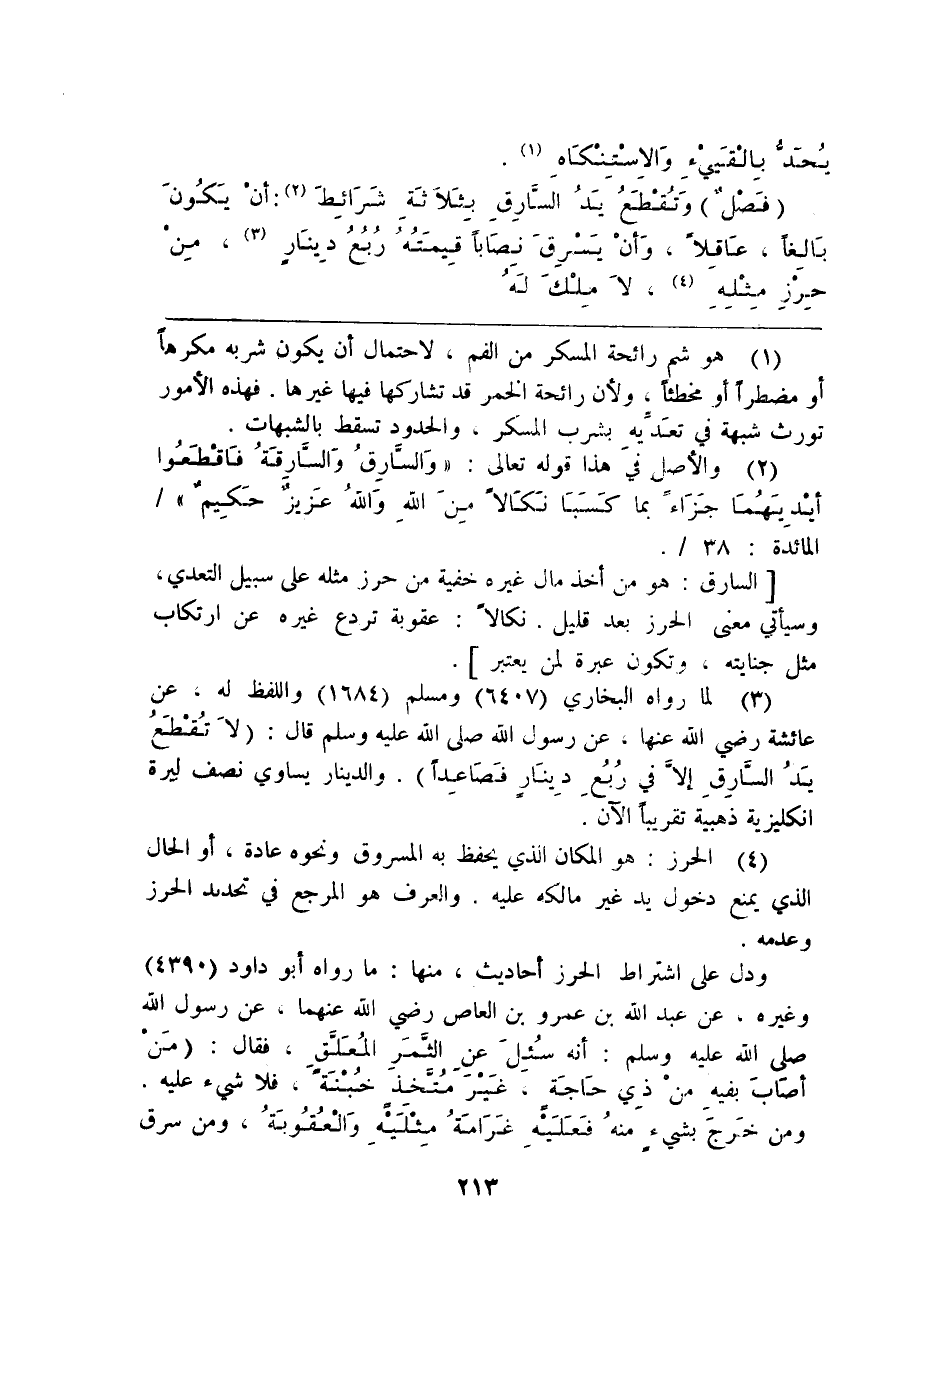 يُحَدُّ بِالْقَيْءِ وَالِاسْتِنْكَاهِ (١) .
( فَصْلٌ ) وَتُقْطَعُ يَدُ السَّارِقِ بِثَلَاثَةِ شَرَائِطَ (٢) : أَنْ يَكُونَ
بَالِغاً ، عَاقِلاً ، وَأَنْ يَسْرِقَ نِصَاباً قِيمَتُهُ رُبُعُ دِينَارٍ (٣) ، مِنْ
حِرْزِ مِثْلِهِ (٤) ، لاَ مِلْكَ لَهُ
(١) هو شم رائحة المسكر من الفم ، لاحتمال أن يكون شربه مكرهاً
أو مضطراً أو مخطئاً ، ولأن رائحة الخمر قد تشاركها فيها غيرها . فهذه الأمور
تورث شبهة في تعدِّيه بشرب المسكر ، والحدود تسقط بالشبهات .
(٢) والأصل في هذا قوله تعالى : « وَالسَّارِقُ وَالسَّارِقَةُ فَاقْطَعُوا
أَيْدِيَهُمَا جَزَاءً بما كَسَبَا نَكَالاً مِنَ اللهِ وَاللهُ عَزِيزٌ حَكِيمٌ » /
المائدة : ٣٨ / .
[ السارق : هو من أخذ مال غيره خفية من حرز مثله على سبيل التعدي ،
وسيأتي معنى الحرز بعد قليل . نكالاً : عقوبة تردع غيره عن ارتكاب
مثل جنايته ، وتكون عبرة لمن يعتبر ] .
(٣) لما رواه البخاري (٦٤٠٧) ومسلم (١٦٨٤) واللفظ له ، عن
عائشة رضي الله عنها ، عن رسول الله صلى الله عليه وسلم قال : ( لاَ تُقْطَعُ
يَدُ السَّارِقِ إلاَّ في رُبُعِ دِينَارٍ فَصَاعِداً ) . والدينار يساوي نصف ليرة
انكليزية ذهبية تقريباً الآن .
(٤) الحرز : هو المكان الذي يحفظ به المسروق ونحوه عادة ، أو الحال
الذي يمنع دخول يد غير مالكه عليه . والعرف هو المرجع في تحديد الحرز
وعدمه .
ودل على اشتراط الحرز أحاديث ، منها : ما رواه أبو داود (٤٣٩٠)
وغيره ، عن عبد الله بن عمرو بن العاص رضي الله عنهما ، عن رسول الله
صلى الله عليه وسلم : أنه سُئِلَ عن الثَّمَرِ المُعَلَّقِ ، فقال : ( مَنْ
أصَابَ بفيه مِنْ ذِي حَاجَةٍ ، غَيْرَ مُتَّخِذٍ خُبْنَةً ، فلا شيء عليه .
ومن خَرَجَ بشيءٍ منهُ فَعَلَيْهِ غَرَامَةُ مِثْلَيْهِ وَالْعُقُوبَةُ ، ومن سرق
٢١٣